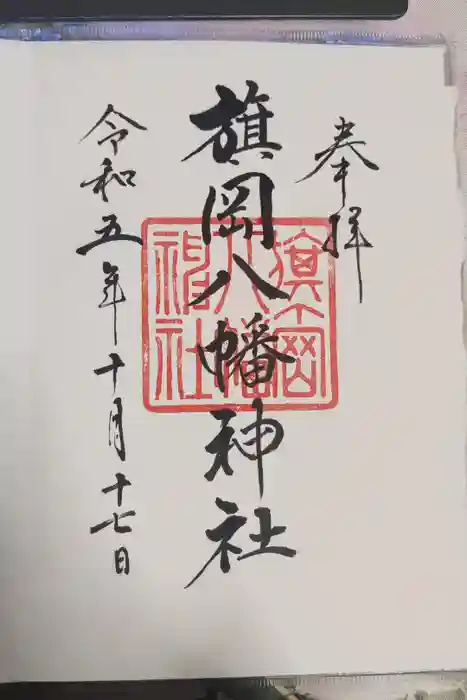 奉拝
旗岡八幡神社
旗岡
八幡
神社
令和五年十月十七日